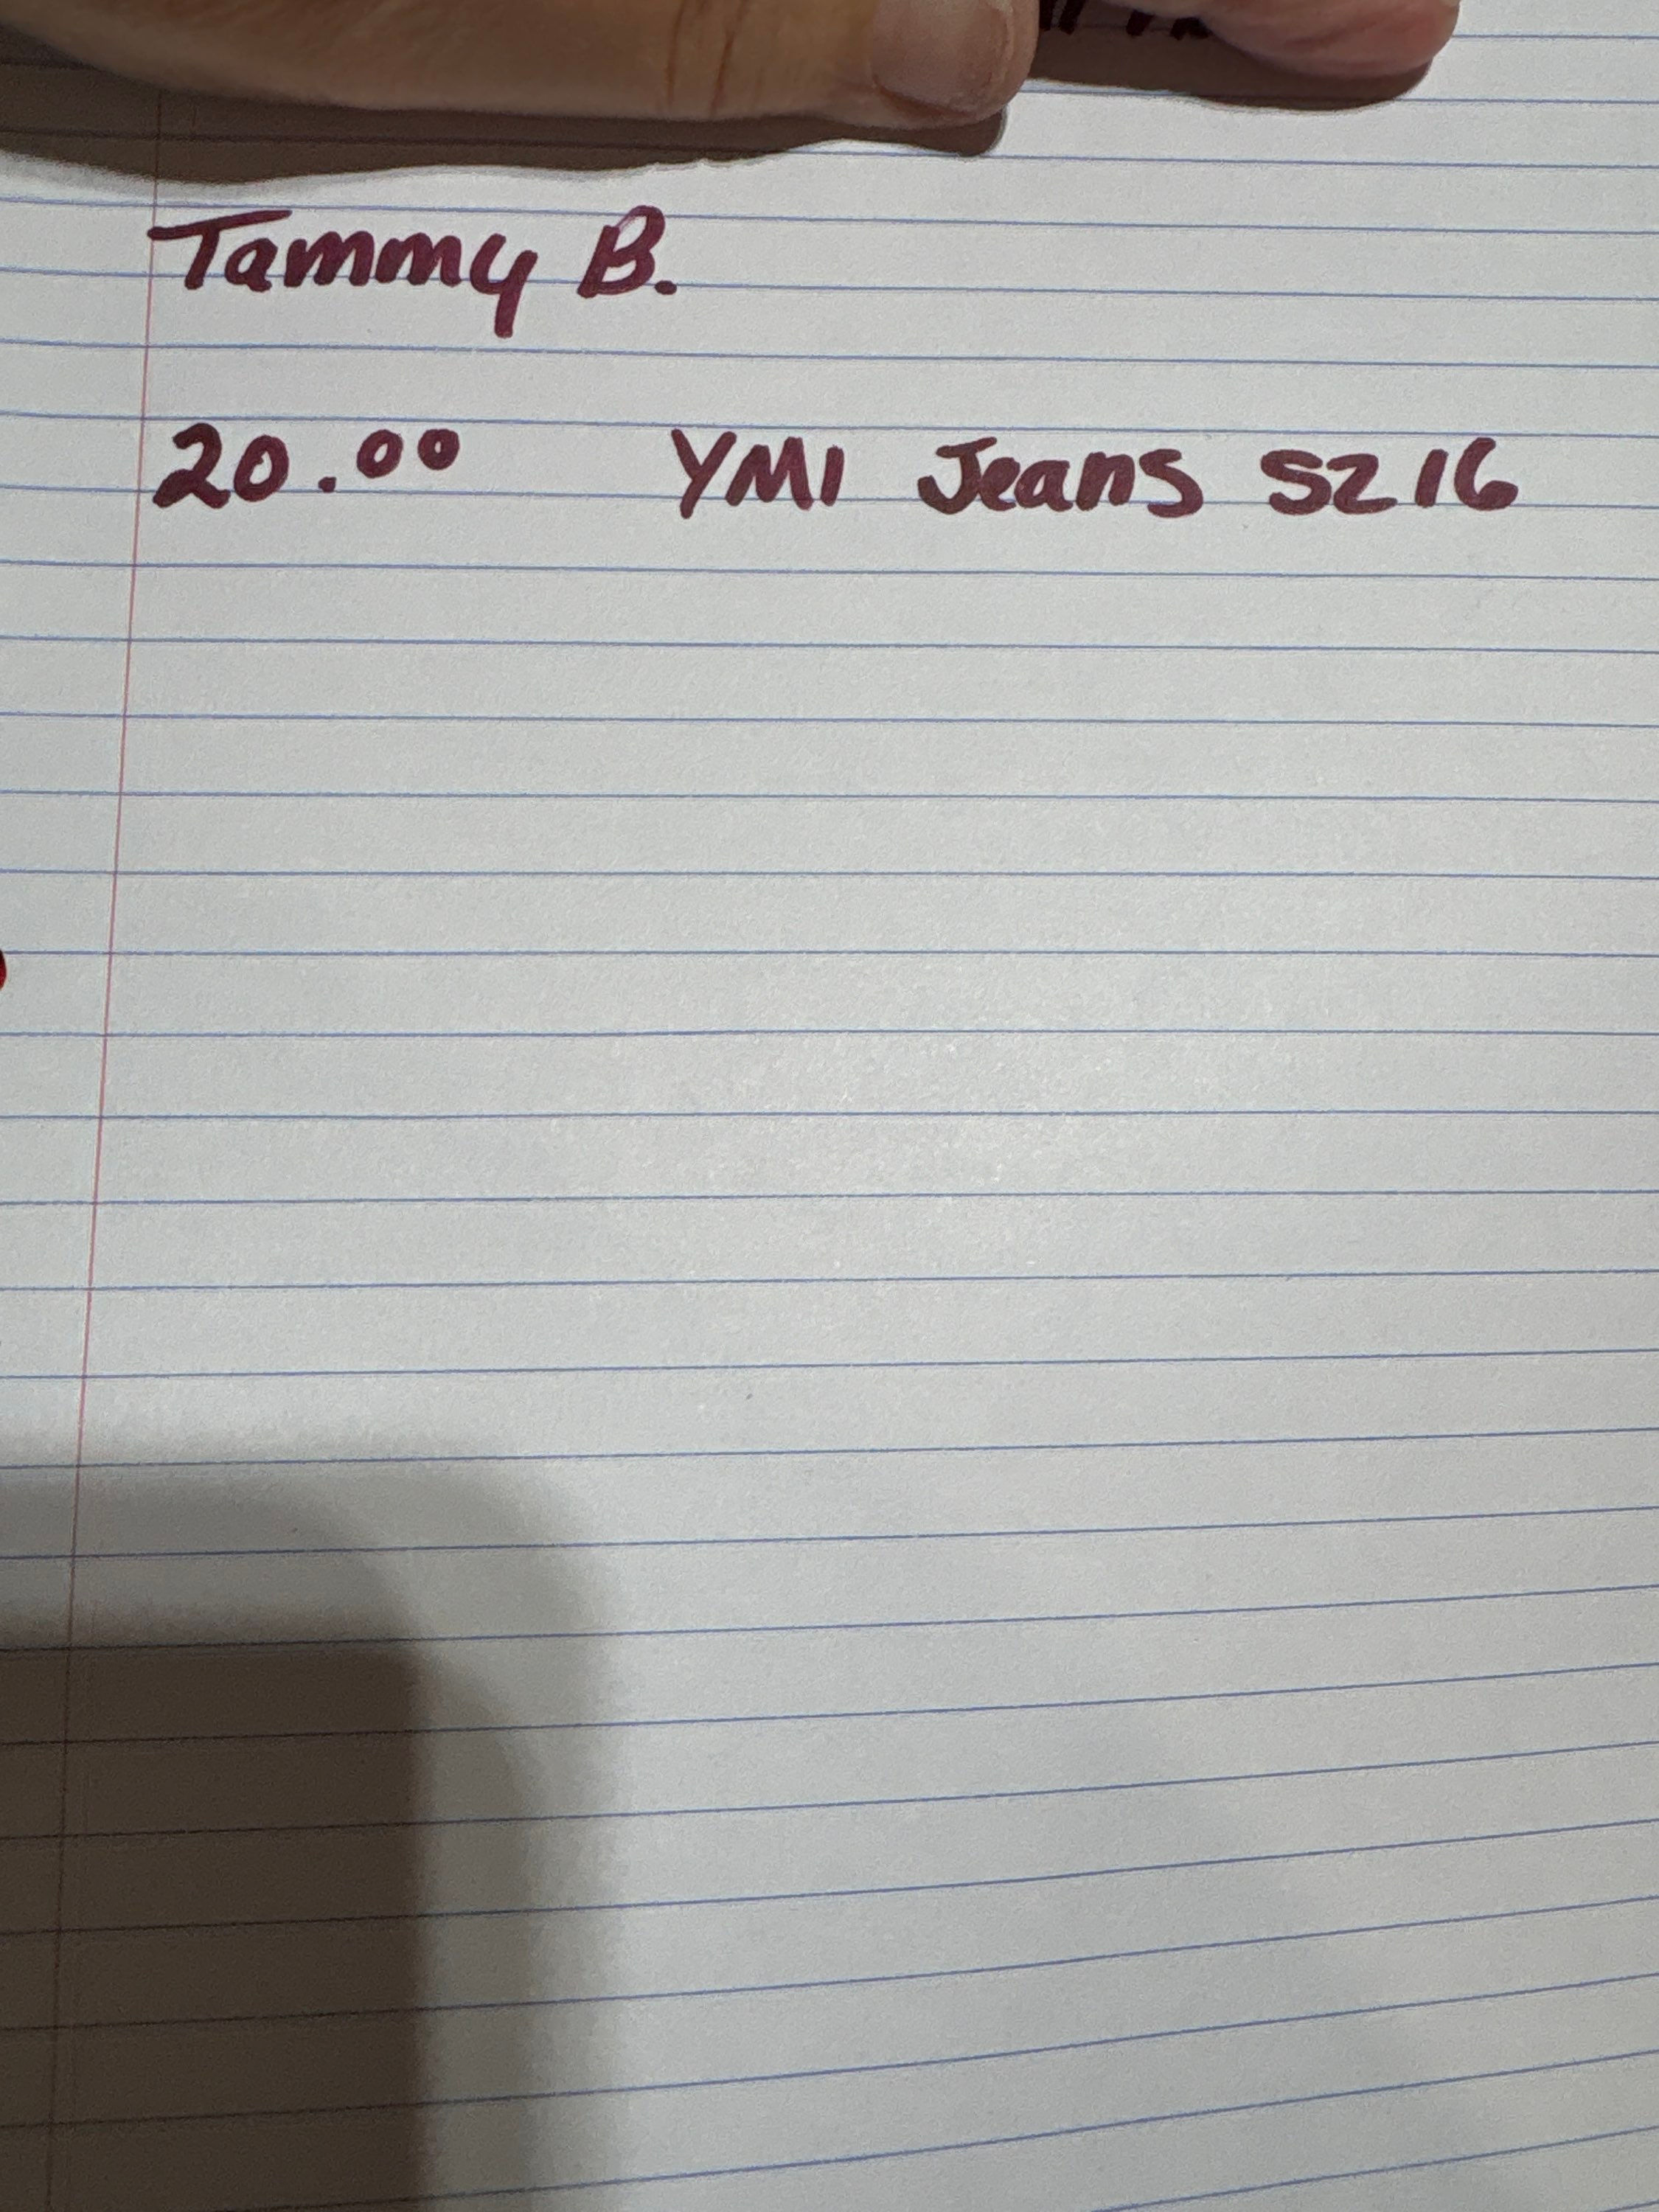 Tammy B.
20.00 YMI Jeans SZ 16